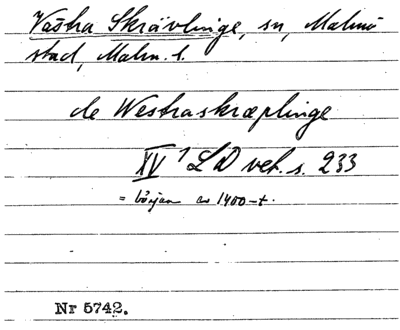 Västra Skrävlinge, sn, Malmö
stad, Malm. l.
de Westraskræplinge
XV 1 LD vet. s. 233
= början av 1400-t.
Nr 5742.